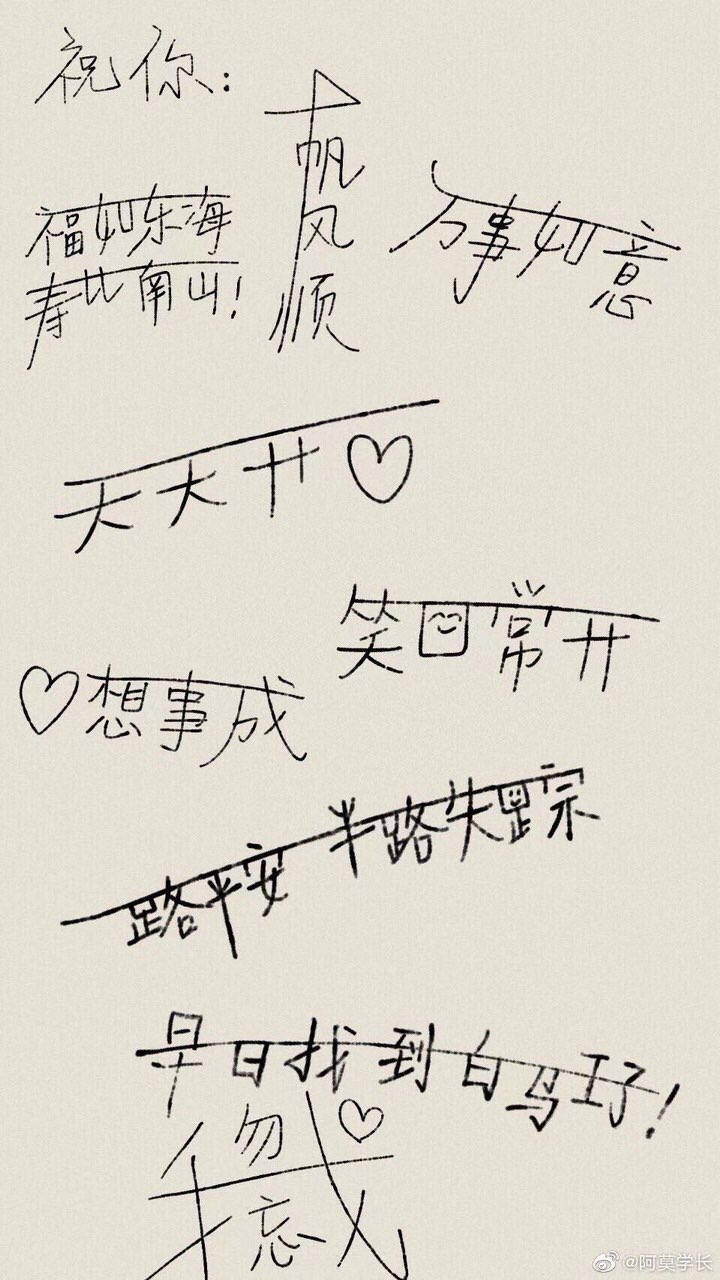 祝你：
一帆风顺
福如东海
寿比南山！
万事如意
天天开♡
笑口常开
♡想事成
一路平安 半路失踪
早日找到白马王子！
勿忘我♡
@阿莫学长